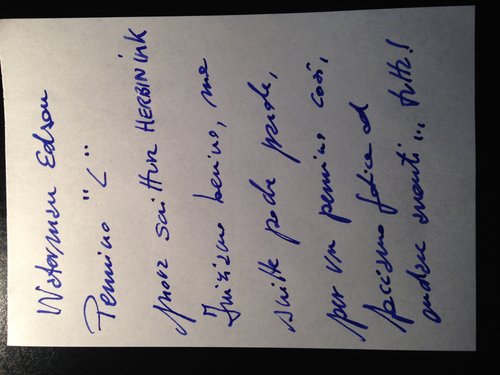 Waterman Edson
Pennino "L"
prova scrittura HERBIN INK
Iniziamo benino, ma
scritte poche parole,
per un pennino così,
facciamo fatica ad
andare avanti... tutta!